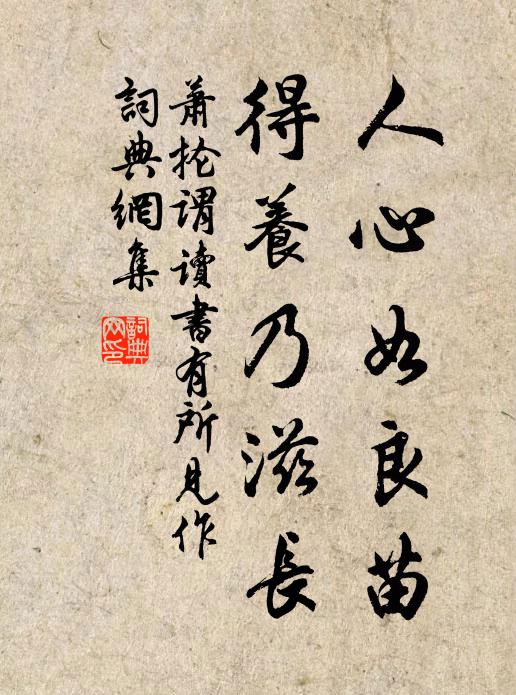 人心如良苗
得養乃滋長
蕭掄謂讀書有所見作
詞典網集
詞典
网印